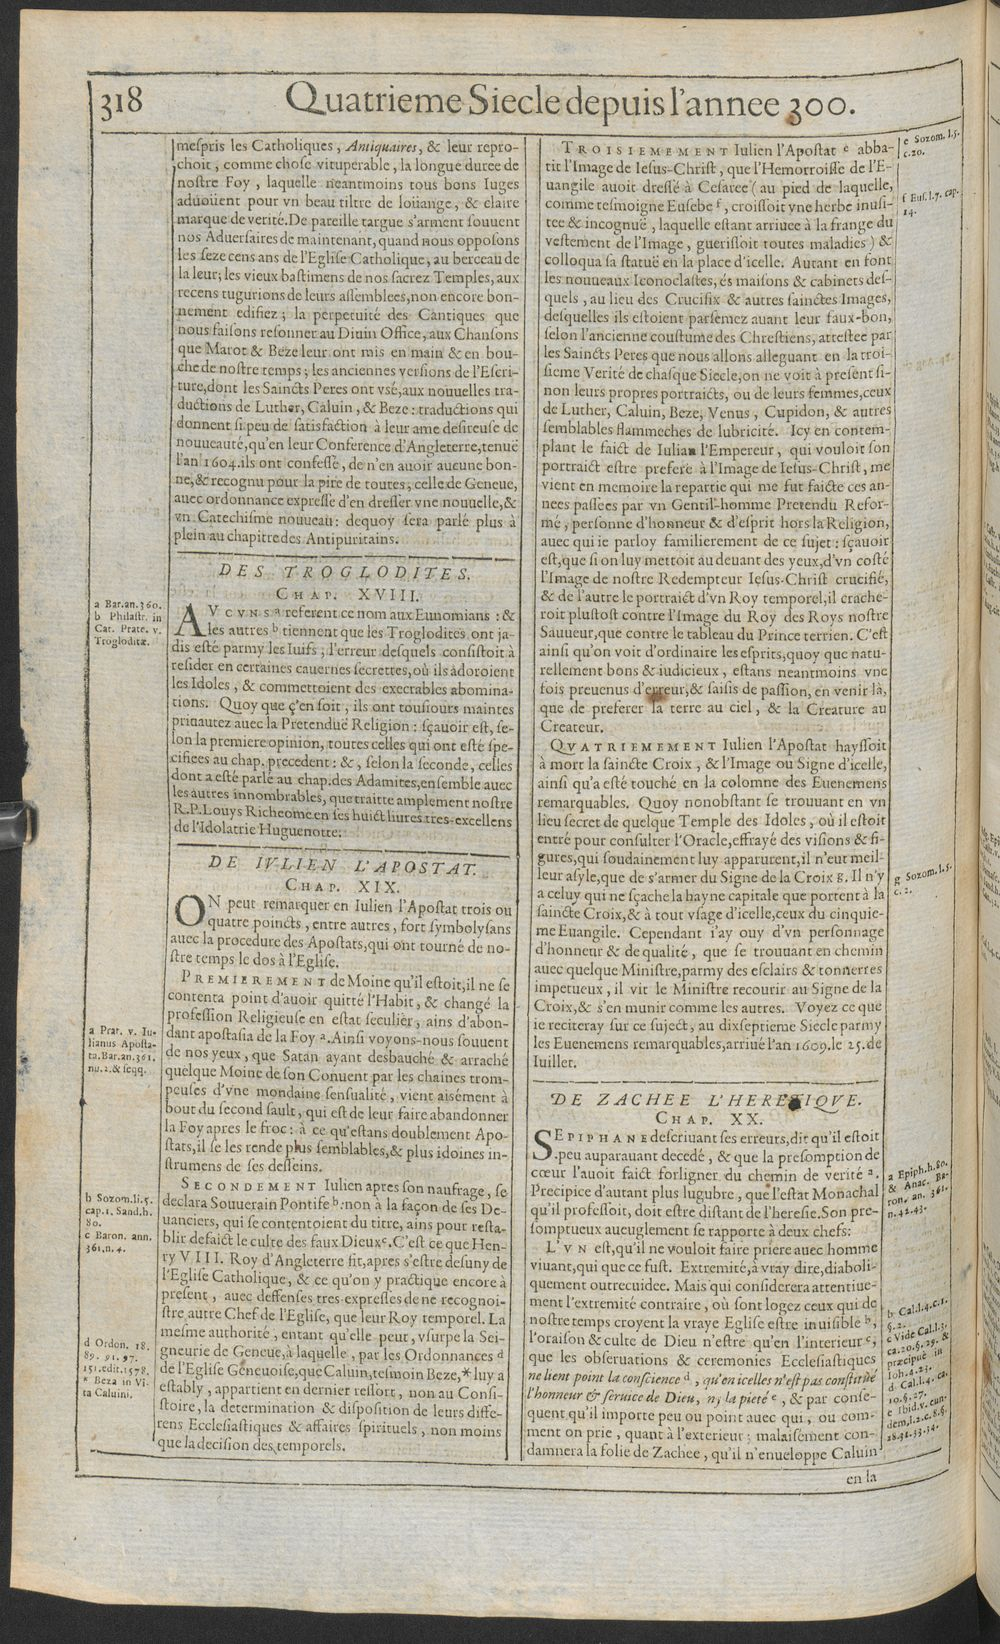 318
Quatrieme Siecle depuis l'annee 300.
mespris les Catholiques, Antiquaires, & leur repro-
choit, comme chose vituperable, la longue duree de
nostre Foy, laquelle neantmoins tous bons Iuges
aduoüent pour vn beau tiltre de loüange, & claire
marque de verité. De pareille targue s'arment souuent
nos Aduersaires de maintenant, quand nous opposons
les seze cens ans de l'Eglise Catholique, au berceau de
la leur; les vieux bastimens de nos sacrez Temples, aux
recens tugurions de leurs assemblees, non encore bon-
nement edifiez; la perpetuité des Cantiques que
nous faisons resonner au Diuin Office, aux Chansons
que Marot & Beze leur ont mis en main & en bou-
che de nostre temps; les anciennes versions de l'Escri-
ture, dont les Saincts Peres ont vsé, aux nouuelles tra-
ductions de Luther, Caluin, & Beze: traductions qui
donnent si peu de satisfaction à leur ame desireuse de
nouueauté, qu'en leur Conference d'Angleterre, tenuë
l'an 1604. ils ont confessé, de n'en auoir aucune bon-
ne, & recognu pour la pire de toutes, celle de Geneue,
auec ordonnance expresse d'en dresser vne nouuelle, &
vn Catechisme nouueau: dequoy sera parlé plus à
plein au chapitre des Antipuritains.
DES TROGLODITES.
CHAP. XVIII.
a Bar. an. 360.
b Philastr. in
Cat. Prate. v.
Trogloditæ.
AVCVNS a referent ce nom aux Eunomians: &
les autres b tiennent que les Troglodites ont ja-
dis esté parmy les Iuifs; l'erreur desquels consistoit à
resider en certaines cauernes secrettes, où ils adoroient
les Idoles, & commettoient des execrables abomina-
tions. Quoy que ç'en soit, ils ont tousiours maintes
priuautez auec la Pretenduë Religion: sçauoir est, se-
lon la premiere opinion, toutes celles qui ont esté spe-
cifiees au chap. precedent: &, selon la seconde, celles
dont a esté parlé au chap. des Adamites, ensemble auec
les autres innombrables, que traitte amplement nostre
R. P. Louys Richeome en ses huict liures tres-excellens
de l'Idolatrie Huguenotte.
DE IVLIEN L'APOSTAT.
CHAP. XIX.
ON peut remarquer en Iulien l'Apostat trois ou
quatre poincts, entre autres, fort symbolysans
auec la procedure des Apostats, qui ont tourné de no-
stre temps le dos à l'Eglise.
PREMIEREMENT de Moine qu'il estoit, il ne se
contenta point d'auoir quitté l'Habit, & changé la
profession Religieuse en estat seculier, ains d'abon-
dant apostasia de la Foy a. Ainsi voyons-nous souuent
de nos yeux, que Satan ayant desbauché & arraché
quelque Moine de son Conuent par les chaines trom-
peuses d'vne mondaine sensualité, vient aisément à
bout du second sault, qui est de leur faire abandonner
la Foy apres le froc: à ce qu'estans doublement Apo-
stats, il se les rende plus semblables, & plus idoines in-
strumens de ses desseins.
a Prat. v. Iu-
lianus Aposta-
ta. Bar. an. 361.
nu. 2. & seqq.
SECONDEMENT Iulien apres son naufrage, se
declara Souuerain Pontife b: non à la façon de ses De-
uanciers, qui se contentoient du titre, ains pour resta-
blir defaict le culte des faux Dieux c. C'est ce que Hen-
ry VIII. Roy d'Angleterre fit, apres s'estre desuny de
l'Eglise Catholique, & ce qu'on y practique encore à
present, auec deffenses tres-expresses de ne recognoi-
stre autre Chef de l'Eglise, que leur Roy temporel. La
mesme authorité, entant qu'elle peut, vsurpe la Sei-
gneurie de Geneue, à laquelle, par les Ordonnances d
de l'Eglise Geneuoise, que Caluin, tesmoin Beze, * luy a
estably, appartient en dernier ressort, non au Consi-
stoire, la determination & disposition de leurs diffe-
rens Ecclesiastiques & affaires spirituels, non moins
que la decision des temporels.
b Sozom. li. 5.
cap. 1. Sand. h.
80.
c Baron. ann.
361. n. 4.
d Ordon. 18.
89. 91. 97.
151. edit. 1578.
* Beza in Vi-
ta Caluini.
TROISIEMEMENT Iulien l'Apostat e abba-
tit l'Image de Iesus-Christ, que l'Hemorroisse de l'E-
uangile auoit dressé à Cesaree (au pied de laquelle,
comme tesmoigne Eusebe f, croissoit vne herbe inusi-
tee & incognuë, laquelle estant arriuee à la frange du
vestement de l'Image, guerissoit toutes maladies) &
colloqua sa statuë en la place d'icelle. Autant en font
les nouueaux Iconoclastes, és maisons & cabinets des-
quels, au lieu des Crucifix & autres sainctes Images,
desquelles ils estoient parsemez auant leur faux-bon,
selon l'ancienne coustume des Chrestiens, attestee par
les Saincts Peres que nous allons alleguant en la troi-
sieme Verité de chasque Siecle, on ne voit à present si-
non leurs propres portraicts, ou de leurs femmes, ceux
de Luther, Caluin, Beze, Venus, Cupidon, & autres
semblables flammeches de lubricité. Icy en contem-
plant le faict de Iulian l'Empereur, qui vouloit son
portraict estre preferé à l'Image de Iesus-Christ, me
vient en memoire la repartie qui me fut faicte ces an-
nees passees par vn Gentil-homme Pretendu Refor-
mé, personne d'honneur & d'esprit hors la Religion,
auec qui ie parloy familierement de ce sujet: sçauoir
est, que si on luy mettoit au deuant des yeux, d'vn costé
l'Image de nostre Redempteur Iesus-Christ crucifié,
& de l'autre le portraict d'vn Roy temporel, il crache-
roit plustost contre l'Image du Roy des Roys nostre
Sauueur, que contre le tableau du Prince terrien. C'est
ainsi qu'on voit d'ordinaire les esprits, quoy que natu-
rellement bons & iudicieux, estans neantmoins vne
fois preuenus d'erreur, & saisis de passion, en venir là,
que de preferer la terre au ciel, & la Creature au
Createur.
e Sozom. l. 5.
c. 20.
f Eus. l. 7. cap.
14.
QVATRIEMEMENT Iulien l'Apostat hayssoit
à mort la saincte Croix, & l'Image ou Signe d'icelle,
ainsi qu'a esté touché en la colomne des Euenemens
remarquables. Quoy nonobstant se trouuant en vn
lieu secret de quelque Temple des Idoles, où il estoit
entré pour consulter l'Oracle, effrayé des visions & fi-
gures, qui soudainement luy apparurent, il n'eut meil-
leur asyle, que de s'armer du Signe de la Croix g. Il n'y
a celuy qui ne sçache la hayne capitale que portent à la
saincte Croix, & à tout vsage d'icelle, ceux du cinquie-
me Euangile. Cependant i'ay ouy d'vn personnage
d'honneur & de qualité, que se trouuant en chemin
auec quelque Ministre, parmy des esclairs & tonnerres
impetueux, il vit le Ministre recourir au Signe de la
Croix, & s'en munir comme les autres. Voyez ce que
ie reciteray sur ce suject, au dixseptieme Siecle parmy
les Euenemens remarquables, arriué l'an 1609. le 25. de
Iuillet.
g Sozom. l. 5.
c. 2.
DE ZACHEE L'HERETIQVE.
CHAP. XX.
SEPIPHANE descriuant ses erreurs, dit qu'il estoit
peu auparauant decedé, & que la presomption de
cœur l'auoit faict forligner du chemin de verité a.
Precipice d'autant plus lugubre, que l'estat Monachal
qu'il professoit, doit estre distant de l'heresie. Son pre-
somptueux aueuglement se rapporte à deux chefs:
L'VN est, qu'il ne vouloit faire priere auec homme
viuant, qui que ce fust. Extremité, à vray dire, diaboli-
quement outrecuidee. Mais qui considerera attentiue-
ment l'extremité contraire, où sont logez ceux qui de
nostre temps croyent la vraye Eglise estre inuisible b,
l'oraison & culte de Dieu n'estre qu'en l'interieur c,
que les obseruations & ceremonies Ecclesiastiques
ne lient point la conscience d, qu'en icelles n'est pas constitué
l'honneur & seruice de Dieu, ny la pieté e, & par conse-
quent qu'il importe peu ou point auec qui, ou com-
ment on prie, quant à l'exterieur; malaisément con-
damnera la folie de Zachee, qu'il n'enueloppe Caluin
a Epiph. h. 80.
& Anac. Ba-
ron. an. 361.
n. 42. 43.
b Cal. l. 4. c. 1.
§. 2.
c Vide Cal. l. 3.
ca. 20. §. 29. &
præcipuè in
Ioh. 4. 23.
d Cal. l. 4. ca.
10. §. 27.
e Ibid. v. eun-
dem, l. 2. c. 8. §.
28. 32. 33. 34.
en la